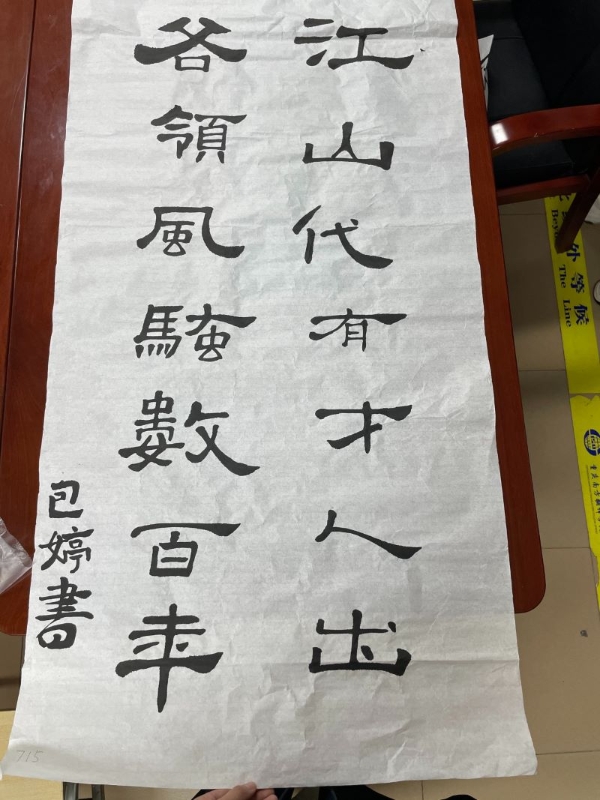 江山代有才人出
各領風騷數百年
包婷書
715
外等候
Beyond The Line